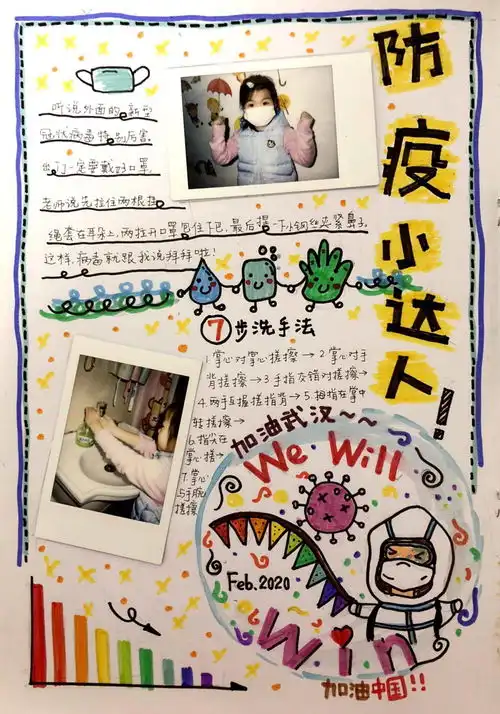 防疫小达人!
听说外面的新型
冠状病毒特别厉害,
出门一定要戴好口罩,
老师说先拉住两根挂
绳套在耳朵上,两拉开口罩包住下巴,最后摁一下小钢丝夹紧鼻子,
这样,病毒就跟我说拜拜啦!
7步洗手法
1.掌心对掌心搓擦→2掌心对手
背搓擦→3手指交错对搓擦→
4.两手互握搓指背→5.拇指在掌中
转搓擦→
6.指尖在
掌心搓→
7.掌心
与手腕
搓擦
加油武汉~~
We Will
Feb.2020
Win
加油中国!!